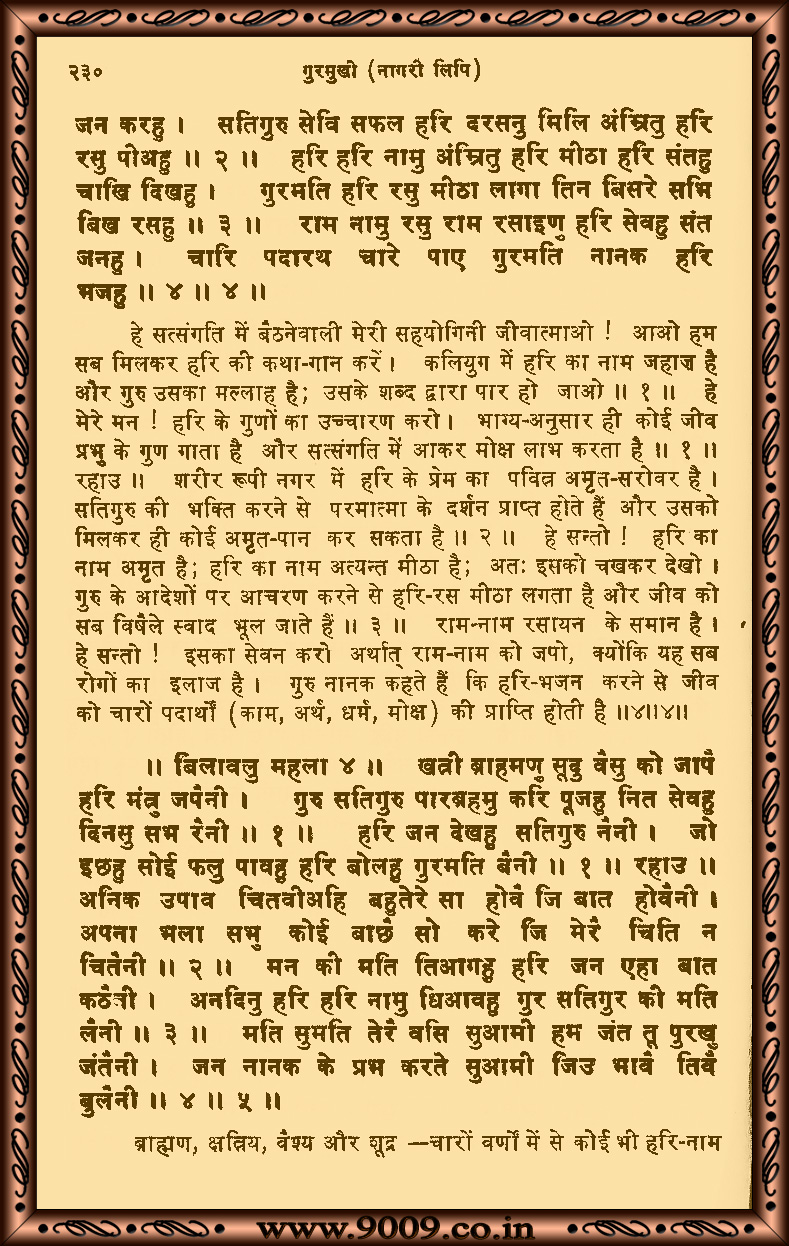 २३० गुरमुखी (नागरी लिपि)
जन करहु । सतिगुरु सेवि सफल हरि दरसनु मिलि अंम्रितु हरि
रसु पीअहु ॥ २ ॥ हरि हरि नामु अंम्रितु हरि मीठा हरि संतहु
चाखि दिखहु । गुरमति हरि रसु मीठा लागा तिन बिसरे सभि
बिख रसहु ॥ ३ ॥ राम नामु रसु राम रसाइणु हरि सेवहु संत
जनहु । चारि पदारथ चारे पाए गुरमति नानक हरि
भजहु ॥ ४ ॥ ४ ॥
हे सत्संगति में बैठनेवाली मेरी सहयोगिनी जीवात्माओ ! आओ हम
सब मिलकर हरि की कथा-गान करें । कलियुग में हरि का नाम जहाज़ है
और गुरु उसका मल्लाह है; उसके शब्द द्वारा पार हो जाओ ॥ १ ॥ हे
मेरे मन ! हरि के गुणों का उच्चारण करो । भाग्य-अनुसार ही कोई जीव
प्रभु के गुण गाता है और सत्संगति में आकर मोक्ष लाभ करता है ॥ १ ॥
रहाउ ॥ शरीर रूपी नगर में हरि के प्रेम का पवित्र अमृत-सरोवर है ।
सतिगुरु की भक्ति करने से परमात्मा के दर्शन प्राप्त होते हैं और उसको
मिलकर ही कोई अमृत-पान कर सकता है ॥ २ ॥ हे सन्तो ! हरि का
नाम अमृत है; हरि का नाम अत्यन्त मीठा है; अतः इसको चखकर देखो ।
गुरु के आदेशों पर आचरण करने से हरि-रस मीठा लगता है और जीव को
सब विषैले स्वाद भूल जाते हैं ॥ ३ ॥ राम-नाम रसायन के समान है ।
हे सन्तो ! इसका सेवन करो अर्थात् राम-नाम को जपो, क्योंकि यह सब
रोगों का इलाज है । गुरु नानक कहते हैं कि हरि-भजन करने से जीव
को चारों पदार्थों (काम, अर्थ, धर्म, मोक्ष) की प्राप्ति होती है ॥४॥४॥
॥ बिलावलु महला ४ ॥ खत्री ब्राहमणु सूदु वैसु को जापै
हरि मंत्रु जपैनी । गुरु सतिगुरु पारब्रहमु करि पूजहु नित सेवहु
दिनसु सभ रैनी ॥ १ ॥ हरि जन देखहु सतिगुरु नैनी । जो
इछहु सोई फलु पावहु हरि बोलहु गुरमति बैनी ॥ १ ॥ रहाउ ॥
अनिक उपाव चितवीअहि बहुतेरे सा होवै जि बात होवैनी ।
अपना भला सभु कोई बाछै सो करे जि मेरै चिति न
चितैनी ॥ २ ॥ मन की मति तिआगहु हरि जन एहा बात
कठैनी । अनदिनु हरि हरि नामु धिआवहु गुर सतिगुर की मति
लैनी ॥ ३ ॥ मति सुमति तेरै वसि सुआमी हम जंत तू पुरखु
जंतैनी । जन नानक के प्रभ करते सुआमी जिउ भावै तिवै
बुलैनी ॥ ४ ॥ ५ ॥
ब्राह्मण, क्षत्रिय, वैश्य और शूद्र —चारों वर्णों में से कोई भी हरि-नाम
www.9009.co.in